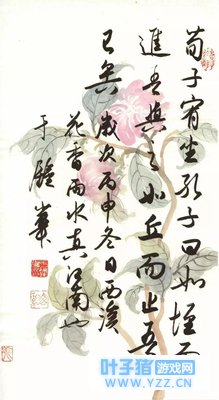 荀子宥坐孔子曰如垤而
進吾與之如丘而止吾
已矣 歲次丙申冬日西溪
花香雨水真江南也
叶子猪
游戏网
WWW.YZZ.CN